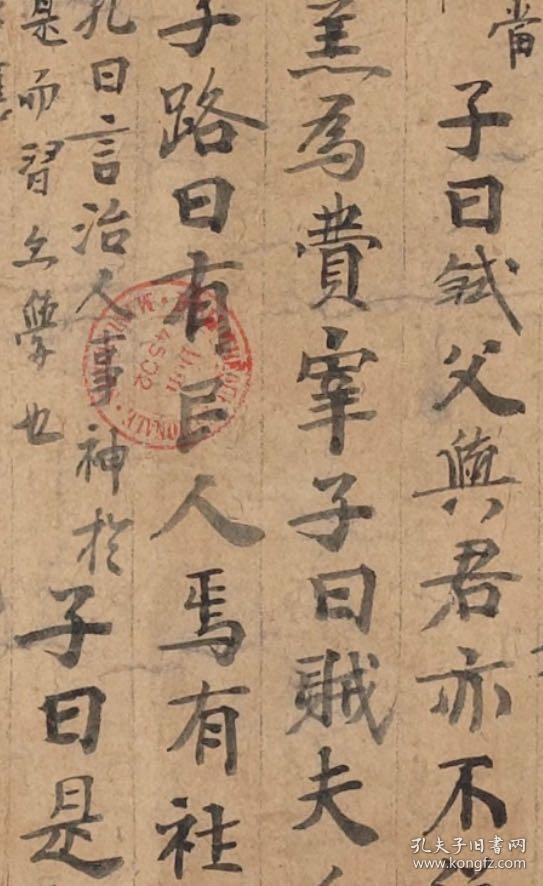 當
子曰弑父與君亦不
羔為費宰子曰賊夫
子路曰有民人焉有社
孔曰言治人事神於
是而習之學也
子曰是
4502
孔夫子旧书网
www.kongfz.com